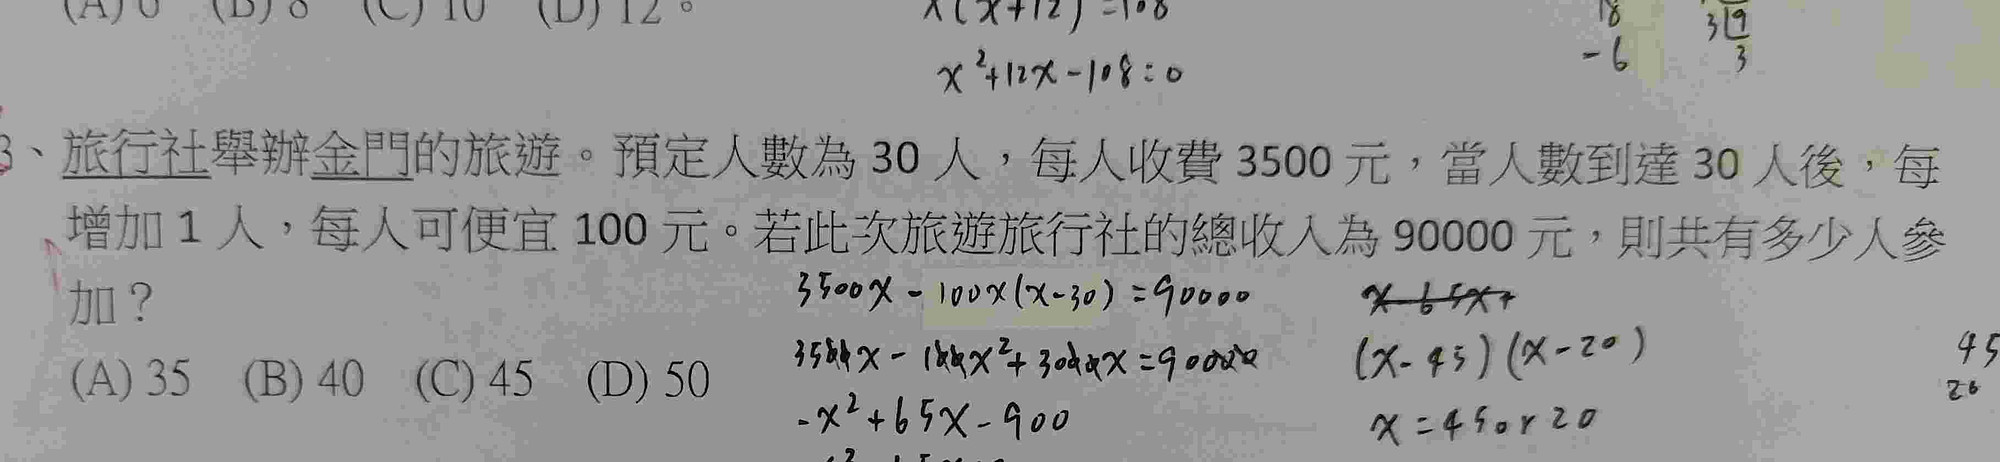 (B) 8 (C) 10 (D) 12。
x(x+12)=108
x²+12x-108=0
18
-6
3 9
3
3、旅行社舉辦金門的旅遊。預定人數為 30 人，每人收費 3500 元，當人數到達 30 人後，每
增加 1 人，每人可便宜 100 元。若此次旅遊旅行社的總收入為 90000 元，則共有多少人參
加？
(A) 35 (B) 40 (C) 45 (D) 50
3500x-100x(x-30)=90000
3500x-100x²+3000x=90000
-x²+65x-900
(x-45)(x-20)
x=45or20
45
20